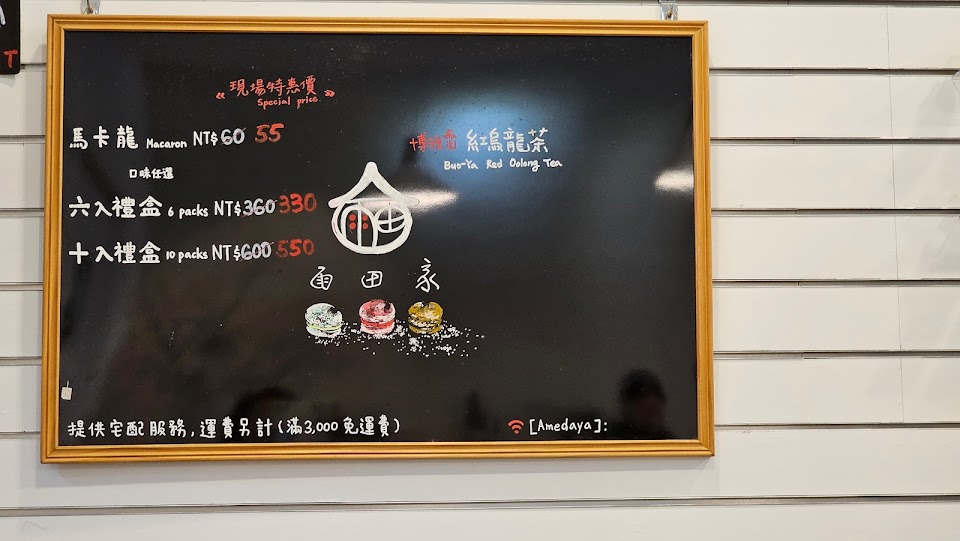 T
現場特惠價
Special price.
馬卡龍 Macaron NT$60 55
口味任選
六入禮盒 6 packs NT$360 330
十入禮盒 10 packs NT$600 550
紅烏龍茶
Buo-Ya Red Oolong Tea
雨田家
提供宅配服務,運費另計(滿3,000免運費)
[Amedaya]: